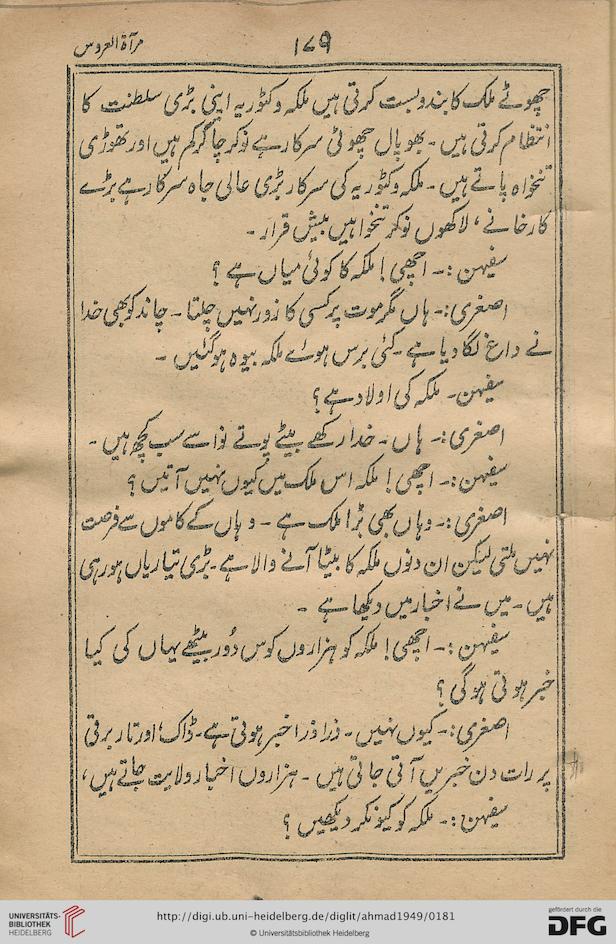 مرآة العروس
۱۷۹
چھوٹے ملک کا بندوبست کرتی ہیں ملکہ وکٹوریہ اپنی بڑی سلطنت کا
انتظام کرتی ہیں۔ بھوپال چھوٹی سرکار ہے نوکر چاکر کم ہیں اور تھوڑی
تنخواہ پاتے ہیں۔ ملکہ وکٹوریہ کی سرکار بڑی عالی جاہ سرکار ہے بڑے
کارخانے، لاکھوں نوکر تنخواہیں بیش قرار۔
سفیہن:۔ اچھی! ملکہ کا کوئی میاں ہے؟
اصغری:۔ ہاں مگر موت پر کسی کا زور نہیں چلتا۔ چاند کو بھی خدا
نے داغ لگا دیا ہے۔ کئی برس ہوئے ملکہ بیوہ ہوگئیں۔
سفیہن۔ ملکہ کی اولاد ہے؟
اصغری:۔ ہاں۔ خدا رکھے بیٹے پوتے نواسے سب کچھ ہیں۔
سفیہن:۔ اچھی! ملکہ اس ملک میں کیوں نہیں آتیں؟
اصغری:۔ وہاں بھی بڑا ملک ہے۔ وہاں کے کاموں سے فرصت
نہیں ملتی لیکن ان دنوں ملکہ کا بیٹا آنے والا ہے۔ بڑی تیاریاں ہو رہی
ہیں۔ میں نے اخبار میں دیکھا ہے۔
سفیہن:۔ اچھی! ملکہ کو ہزاروں کوس دُور بیٹھے یہاں کی کیا
خبر ہوتی ہوگی؟
اصغری:۔ کیوں نہیں۔ ذرا ذرا خبر ہوتی ہے۔ ڈاک اور تار برقی
پر رات دن خبریں آتی جاتی ہیں۔ ہزاروں اخبار ولایت جاتے ہیں،
سفیہن:۔ ملکہ کو کیونکر دیکھیں؟
UNIVERSITÄTS-
BIBLIOTHEK
HEIDELBERG
http://digi.ub.uni-heidelberg.de/diglit/ahmad1949/0181
© Universitätsbibliothek Heidelberg
gefördert durch die
DFG